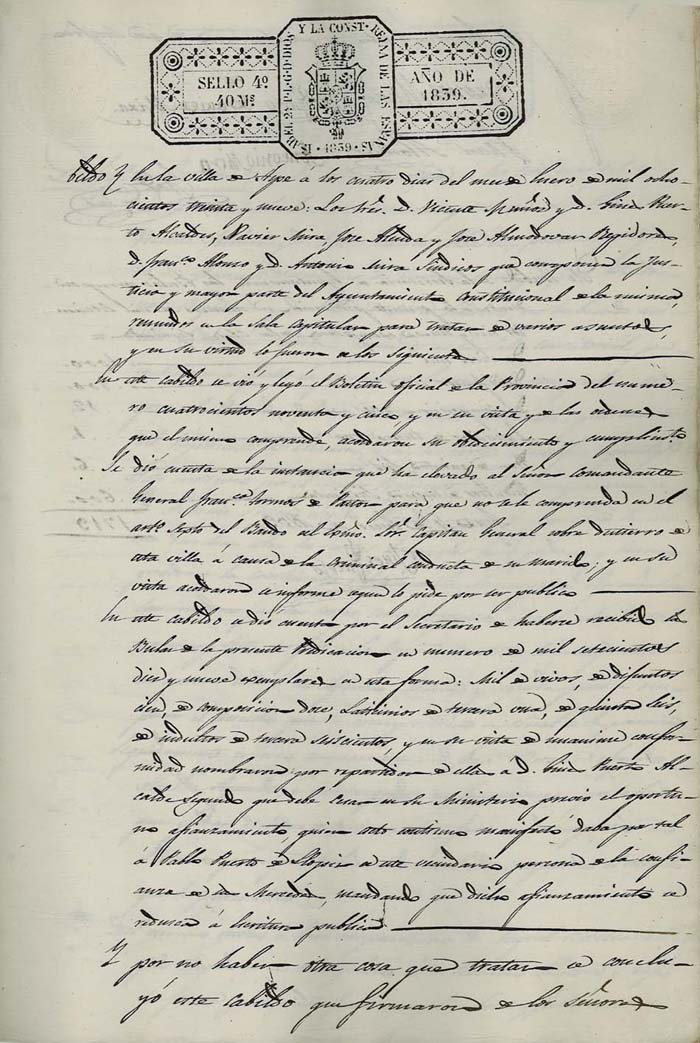 SELLO 4º
40 Mˢ
ISABEL 2ª P.L.G.D.DIOS Y LA CONST. REINA DE LAS ESPAÑAS
1839
AÑO DE
1839.
bildo En la villa de Aspe a los cuatro dias del mes de Enero de mil ocho-
cientos treinta y nueve: Los Sres. D. Vicente Muñoz y D. Ginés Puer-
to Alcaldes, Xavier Mira José Alenda y José Almodovar Regidores,
D. Franco. Alonso y D. Antonio Mira Sindicos que componen la Jus-
ticia y mayor parte del Ayuntamiento Constitucional de la misma,
reunidos en la Sala Capitular para tratar de varios asuntos,
y en su virtud lo fueron de los siguientes
En este cabildo se vió y leyó el Boletin oficial de la Provincia del nume-
ro cuatrocientos noventa y cinco, y en su vista y de las ordenes
que el mismo comprende, acordaron su obedecimiento y cumplimto.
Se dió cuenta de la instancia que ha elevado al Señor Comandante
General Franca. Tormos de Pastor para que no se le comprenda en el
arto. septo. del Bando del Esmo. Sor. Capitan General sobre destierro de
esta villa á causa de la criminal conducta de su marido; y en su
vista acordaron se informe aquello pide por ser publico
En este cabildo se dió cuenta por el Secretario de haberse recibido la
Bulas de la presente Predicacion en numero de mil setecientos
diez y nueve exemplares en esta forma: Mil de vivos, de difuntos
cien, de composicion doce, Lacticinios de tercera una, de quinta seis,
de indultos de tercera seiscientos, y en su vista de unanime confor-
midad nombraron por repartidor de ellas a D. Ginés Puerto Al-
calde segundo que debe cesar en su Ministerio previo el oportu-
no afianzamiento quien acto continuo manifestó daba por tal
á Pablo Puerto de de este vecindario persona de la confi-
anza de sus Mercedes, mandando que dicho afianzamiento se
reduzca á Escritura publica
Y por no haber otra cosa que tratar se conclu-
yó este cabildo que firmaron de los Señores